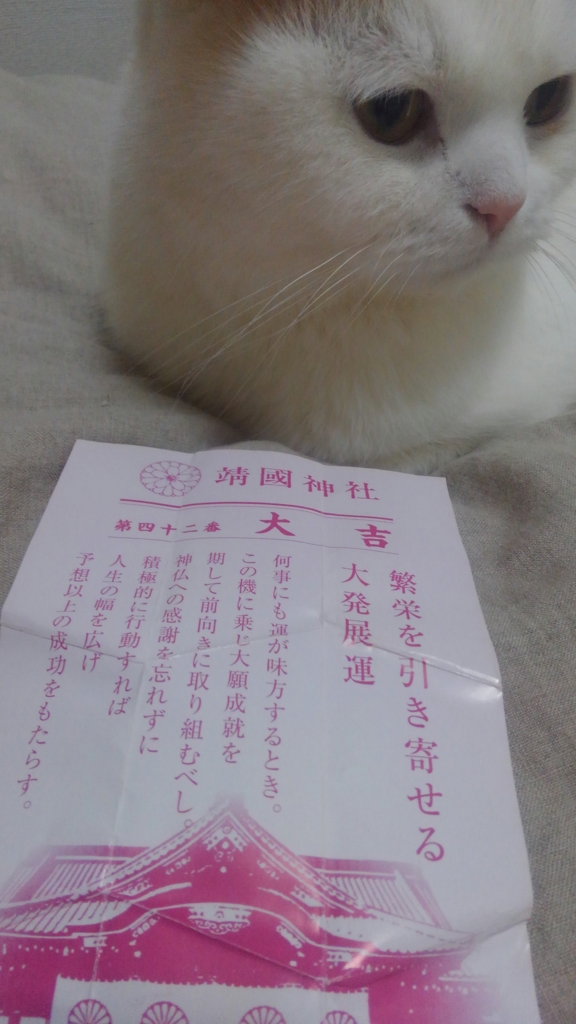 靖國神社
第四十二番 大吉
繁栄を引き寄せる
大発展運
何事にも運が味方するとき。
この機に乗じ大願成就を
期して前向きに取り組むべし。
神仏への感謝を忘れずに
積極的に行動すれば
人生の幅を広げ
予想以上の成功をもたらす。